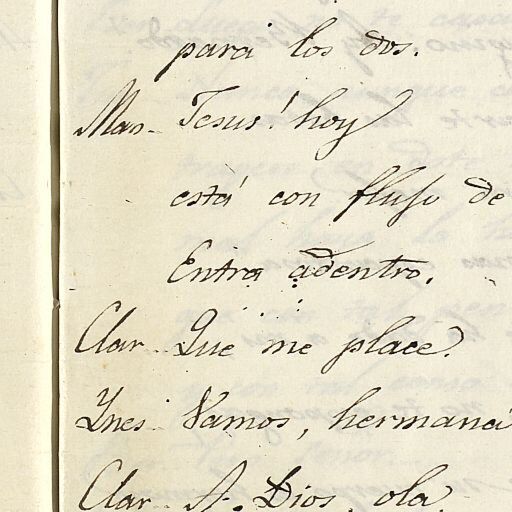 para los dos.
Mar. Jesus! hoy
está con flujo de
Entra adentro.
Clar. Que me place.
Ynes. Vamos, hermana
Clar. A. Dios, ola